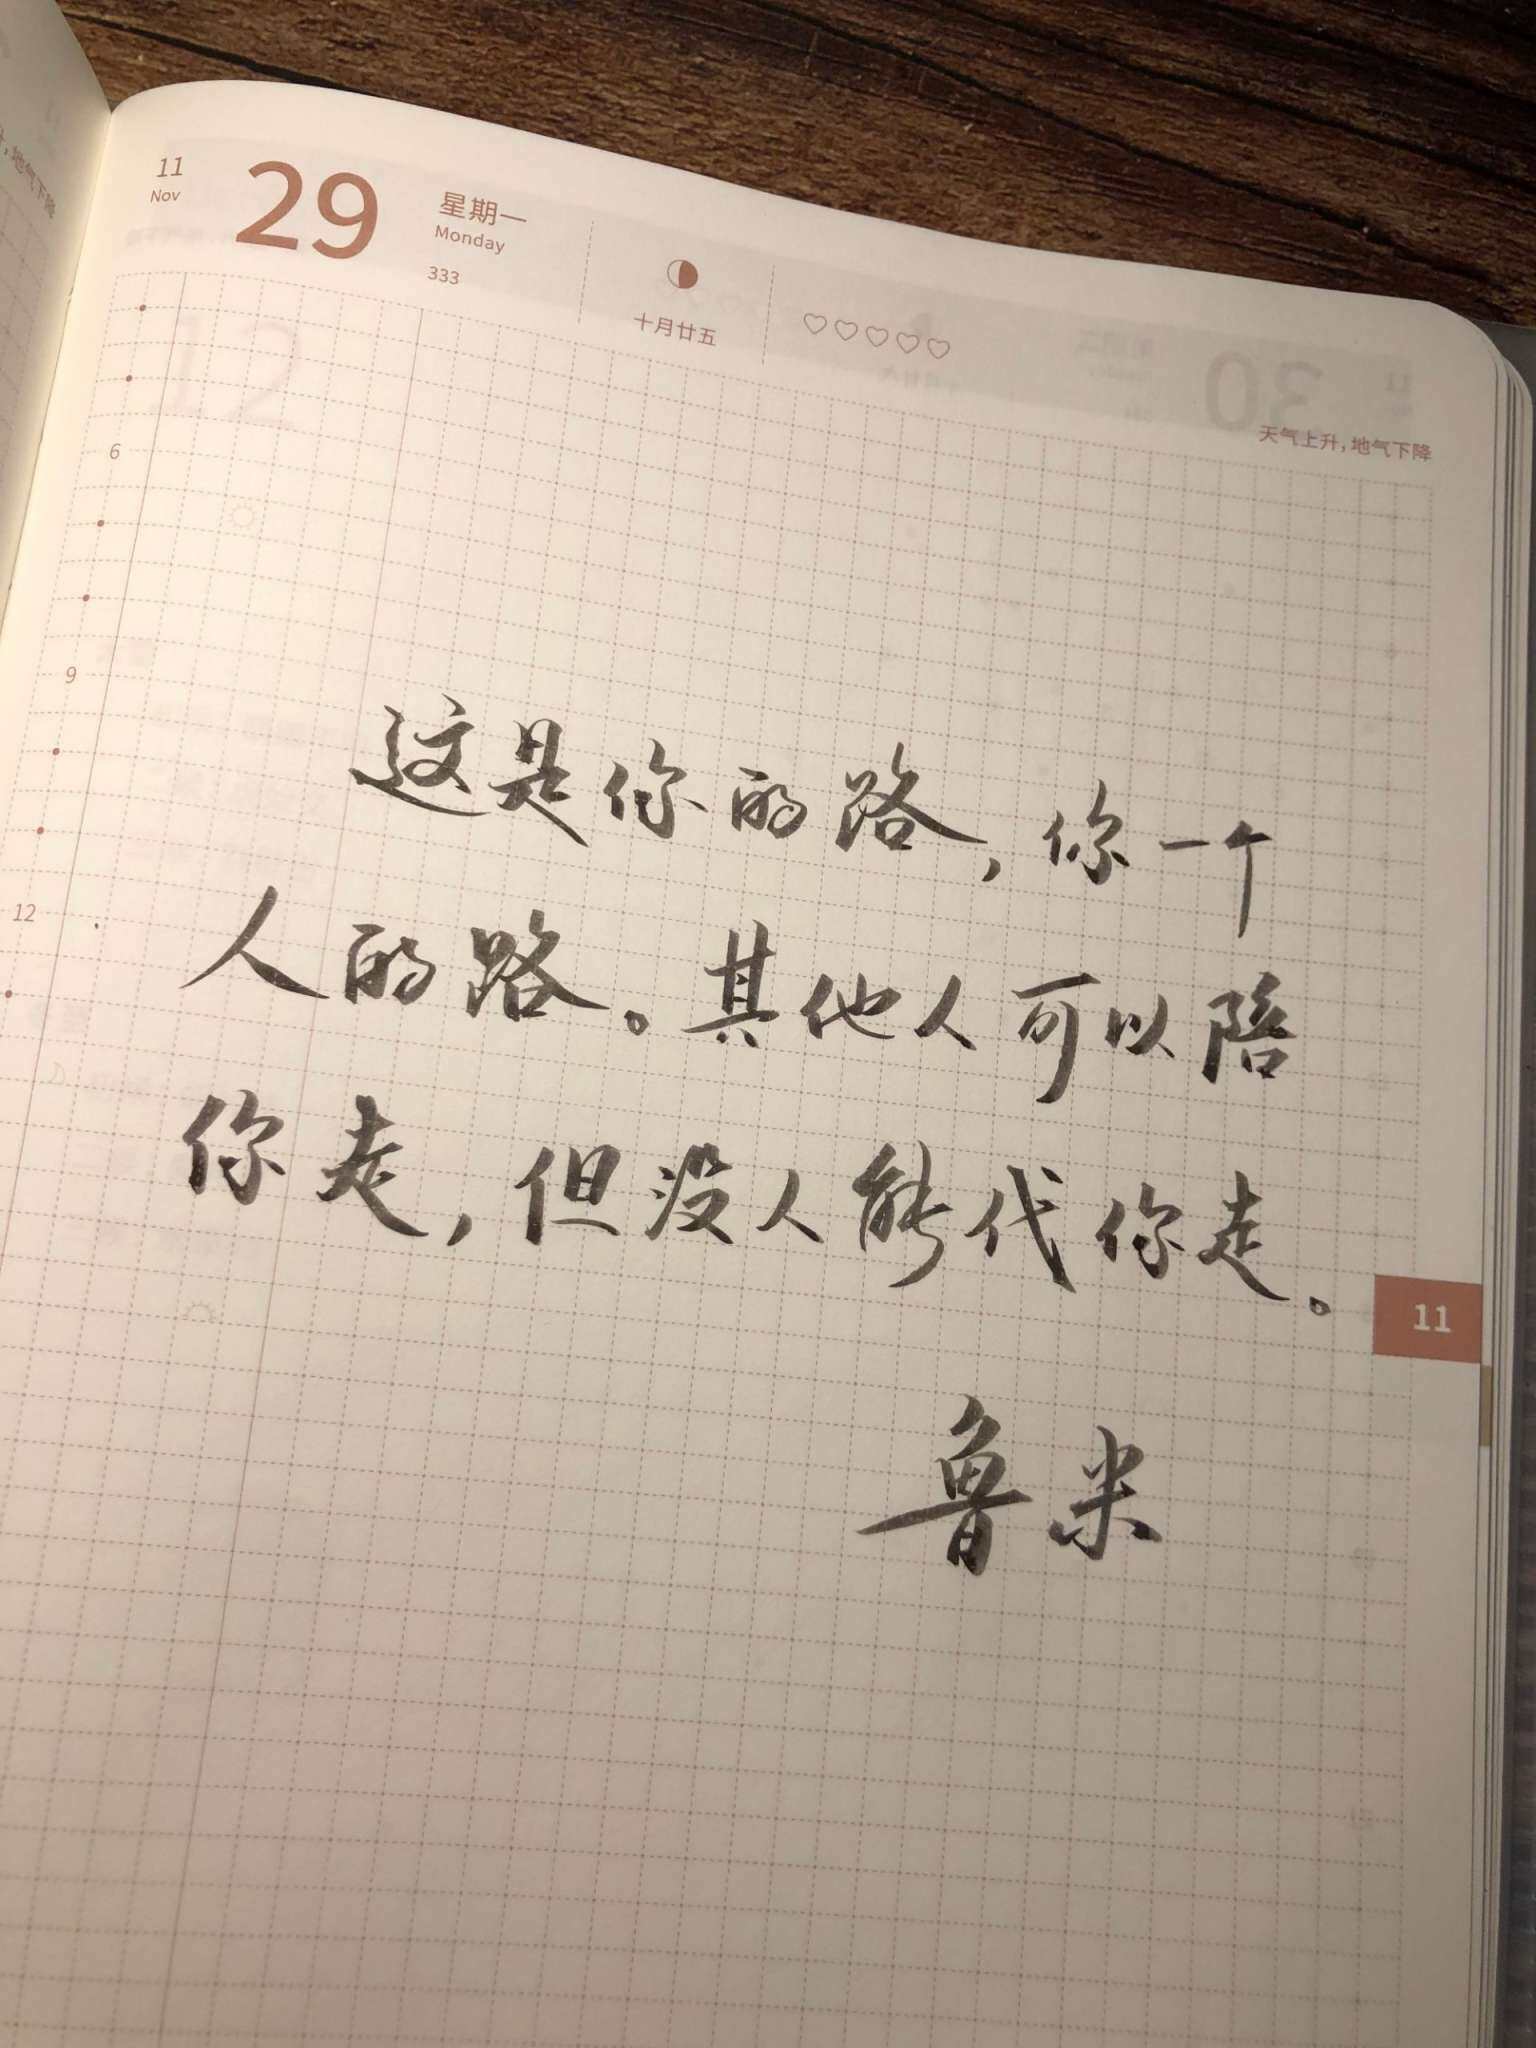 11
Nov
29
星期一
Monday
333
十月廿五
天气上升，地气下降
6
9
12
这是你的路，你一个
人的路。其他人可以陪
你走，但没人能代你走。
11
鲁米